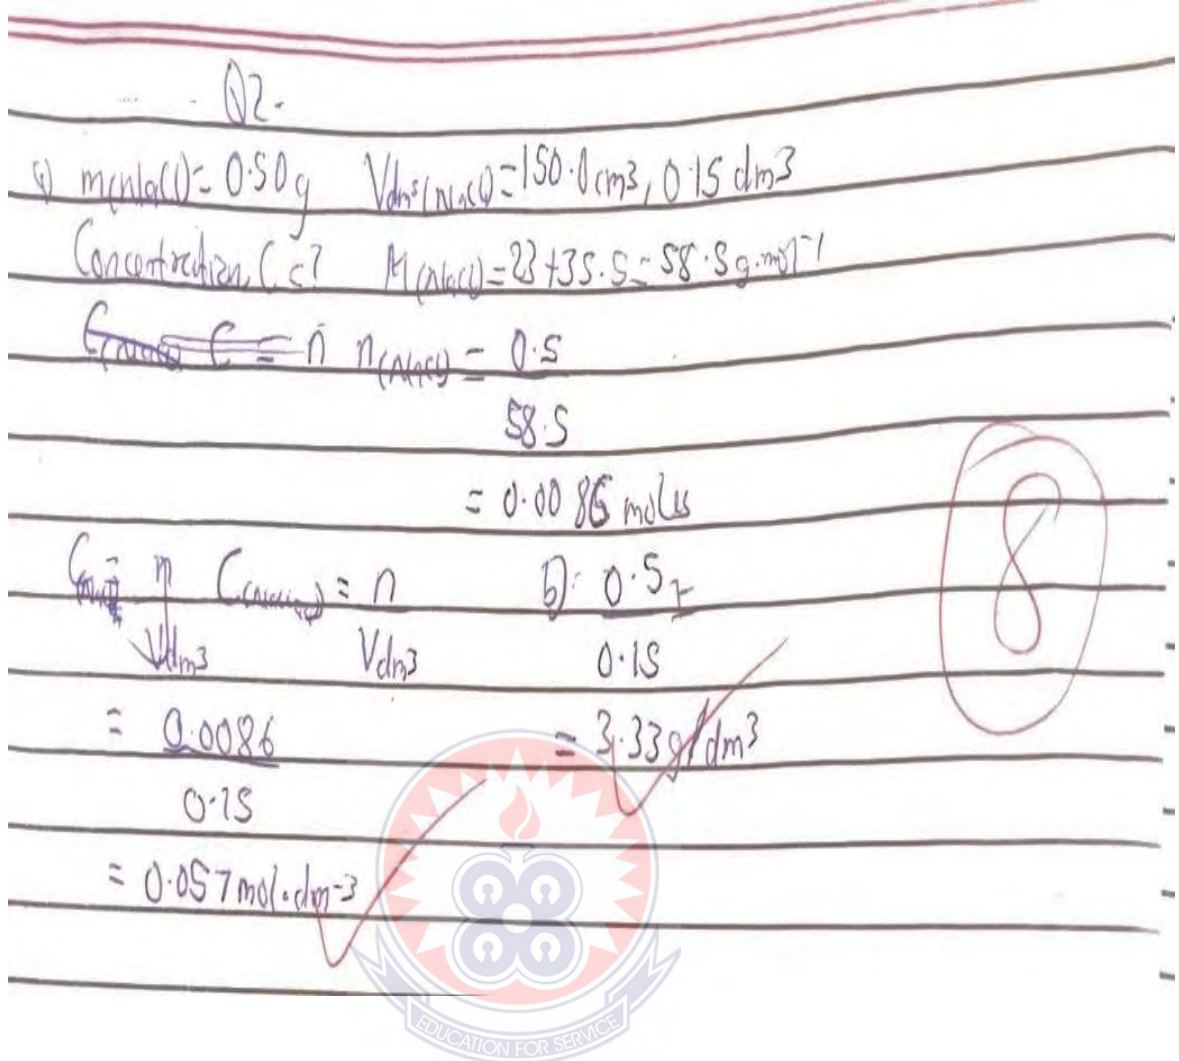 Q2.
a) m(NaCl) = 0.50g Vdm³(NaCl) = 150.0cm³, 0.15 dm3
Concentration, C = ? M(NaCl) = 23 + 35.5 = 58.5 g.mol⁻¹
C = n n(NaCl) = 0.5
58.5
= 0.0086 moles
C = n C = n b) = 0.5
Vdm3 Vdm3 0.15
= 0.0086 = 3.33g/dm3
0.15
= 0.057 mol.dm-3
8
EDUCATION FOR SERVICE